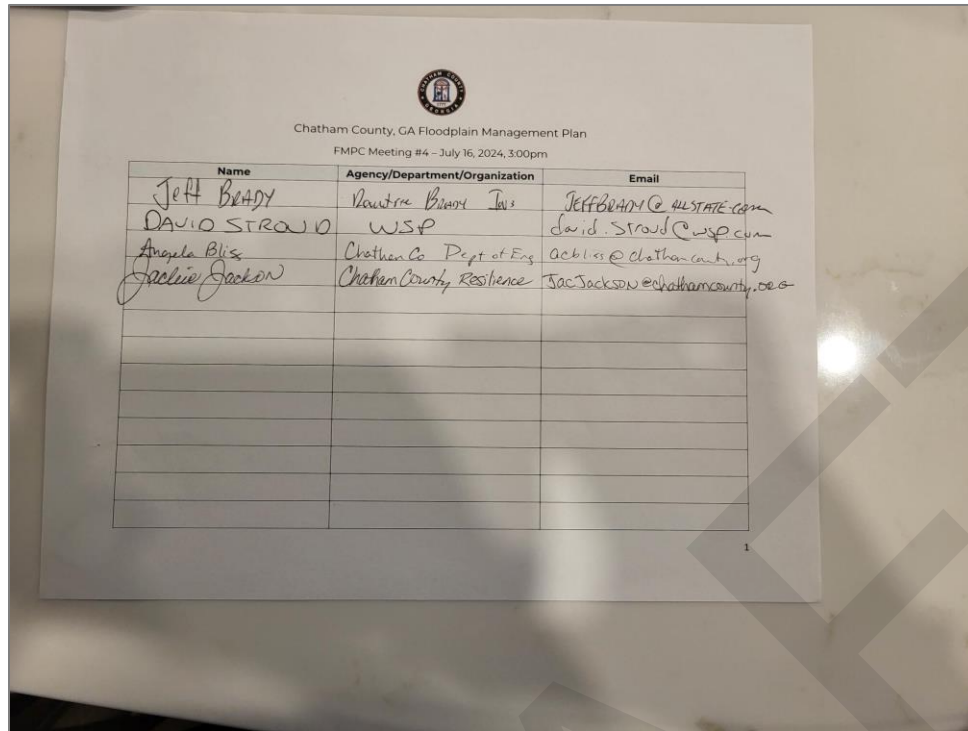 CHATHAM COUNTY
GEORGIA
Chatham County, GA Floodplain Management Plan
FMPC Meeting #4 – July 16, 2024, 3:00pm
Name Agency/Department/Organization Email
Jeff BRADY BRADY Ins JEFFBRADY@ALLSTATE.com
DAVID STROUD WSP david.stroud@wsp.com
Angela Bliss Chatham Co Dept of Eng acbliss@chathamcounty.org
Jackie Jackson Chatham County Resilience JacJackson@chathamcounty.org
1